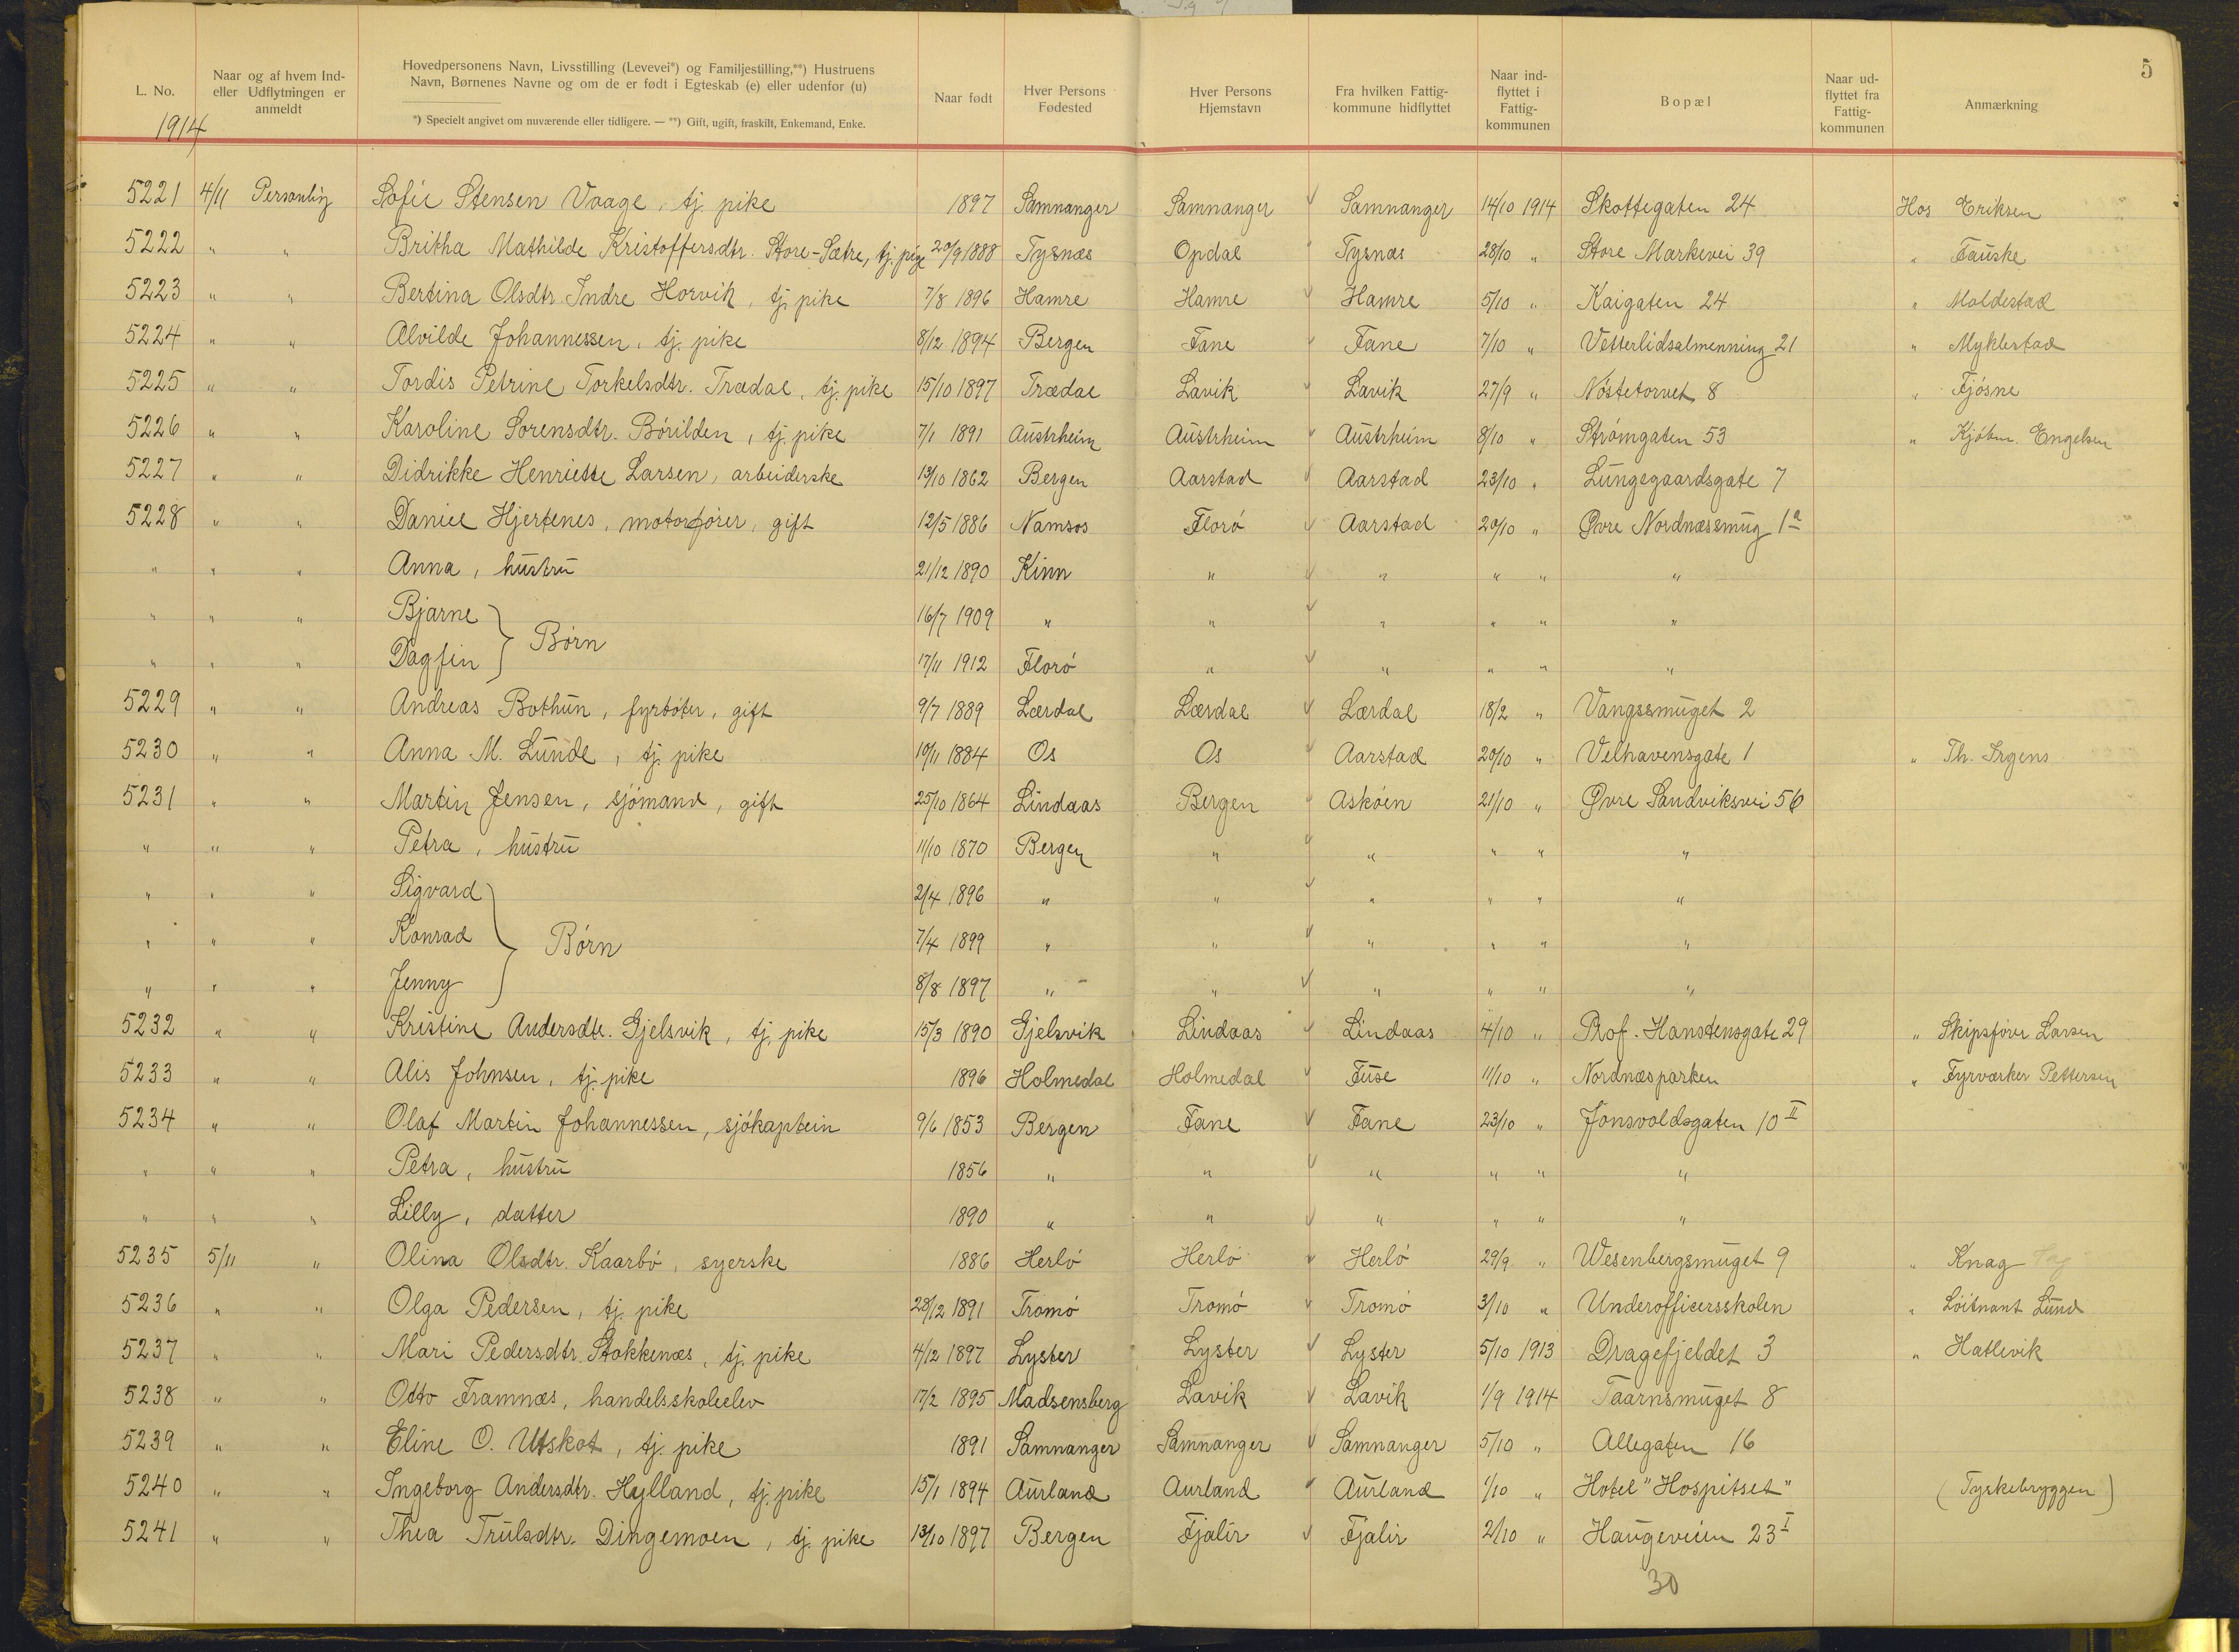 5
L. No.
Naar og af hvem Ind-
eller Udflytningen er
anmeldt
Hovedpersonens Navn, Livsstilling (Levevei*) og Familjestilling,**) Hustruens
Navn, Børnenes Navne og om de er født i Egteskab (e) eller udenfor (u)
*) Specielt angivet om nuværende eller tidligere. — **) Gift, ugift, fraskilt, Enkemand, Enke.
Naar født
Hver Persons
Fødested
Hver Persons
Hjemstavn
Fra hvilken Fattig-
kommune hidflyttet
Naar ind-
flyttet i
Fattig-
kommunen
Bopæl
Naar ud-
flyttet fra
Fattig-
kommunen
Anmærkning
1914
5221 4/11 Personlig Sofie Stensen Vaage, tj. pike 1897 Samnanger Samnanger Samnanger 14/10 1914 Skottegaten 24 Hos Eriksen
5222 " " Britha Mathilde Kristoffersdtr. Store-Sætre, tj. pige 20/9 1888 Tysnæs Opdal Tysnæs 28/10 " Store Markevei 39 " Fauske
5223 " " Bertina Olsdtr. Indre Horvik, tj. pike 7/8 1896 Hamre Hamre Hamre 5/10 " Kaigaten 24 " Moldestad
5224 " " Alvilde Johannessen, tj. pike 8/12 1894 Bergen Fane Fane 7/10 " Vetterlidsalmenning 21 " Myklestad
5225 " " Tordis Petrine Torkelsdtr. Trædal, tj. pike 15/10 1897 Trædal Lavik Lavik 27/9 " Nøstetorvet 8 " Fjøsne
5226 " " Karoline Sorensdtr. Børilden, tj. pike 7/1 1891 Austrheim Austrheim Austrheim 8/10 " Strømgaten 53 " Kjøbm. Engelsen
5227 " " Didrikke Henriette Larsen, arbeiderske 13/10 1862 Bergen Aarstad Aarstad 23/10 " Lungegaardsgate 7
5228 " " Daniel Hjertenes, motorfører, gift 12/5 1886 Namsos Florø Aarstad 20/10 " Øvre Nordnæssmug 1a
" " " Anna, hustru 21/12 1890 Kinn " " " " "
" " " Bjarne 16/7 1909 " " " " " "
Børn
" " " Dagfin 17/11 1912 Florø " " " " "
5229 " " Andreas Bothun, fyrbøter, gift 9/7 1889 Lærdal Lærdal Lærdal 18/2 " Vangssmuget 2
5230 " " Anna M. Lunde, tj. pike 10/11 1884 Os Os Aarstad 20/10 " Velhavensgate 1 " Th. Irgens
5231 " " Martin Jensen, sjømand, gift 25/10 1864 Lindaas Bergen Askøen 21/10 " Øvre Sandviksvei 56
" " " Petra, hustru 11/10 1870 Bergen " " " " "
" " " Sigvard 2/4 1896 " " " " " "
" " " Konrad Børn 7/4 1899 " " " " " "
" " " Jenny 8/8 1897 " " " " " "
5232 " " Kristine Andersdtr. Gjelsvik, tj. pike 15/3 1890 Gjelsvik Lindaas Lindaas 4/10 " Prof. Hanstensgate 29 " Skipsfører Larsen
5233 " " Alis Johnsen, tj. pike 1896 Holmedal Holmedal Fuse 11/10 " Nordnæsparken " Fyrværker Pettersen
5234 " " Olaf Martin Johannessen, sjøkaptein 9/6 1853 Bergen Fane Fane 23/10 " Jonsvoldsgaten 10 II
" " " Petra, hustru 1856 " " " " " "
" " " Lilly, datter 1890 " " " " " "
5235 5/11 " Olina Olsdtr. Kaarbø, syerske 1886 Herlø Herlø Herlø 29/9 " Wesenbergsmuget 9 " Knag
5236 " " Olga Pedersen, tj. pike 28/12 1891 Tromø Tromø Tromø 3/10 " Underofficersskolen " Løitnant Lund
5237 " " Mari Pedersdtr. Stokkenæs, tj. pike 4/12 1897 Lyster Lyster Lyster 5/10 1913 Dragefjeldet 3 " Hatlevik
5238 " " Otto Framnæs, handelsskoleelev 17/2 1895 Madsensberg Lavik Lavik 1/9 1914 Taarnsmuget 8
5239 " " Eline O. Utskot, tj. pike 1891 Samnanger Samnanger Samnanger 5/10 " Allegaten 16
5240 " " Ingeborg Andersdtr. Hylland, tj. pike 15/1 1894 Aurland Aurland Aurland 1/10 " Hotel "Hospitset" (Tyskebryggen)
5241 " " Thea Trulsdtr. Dingemoen, tj. pike 13/10 1897 Bergen Fjalir Fjalir 2/10 " Haugeveien 23 I
30